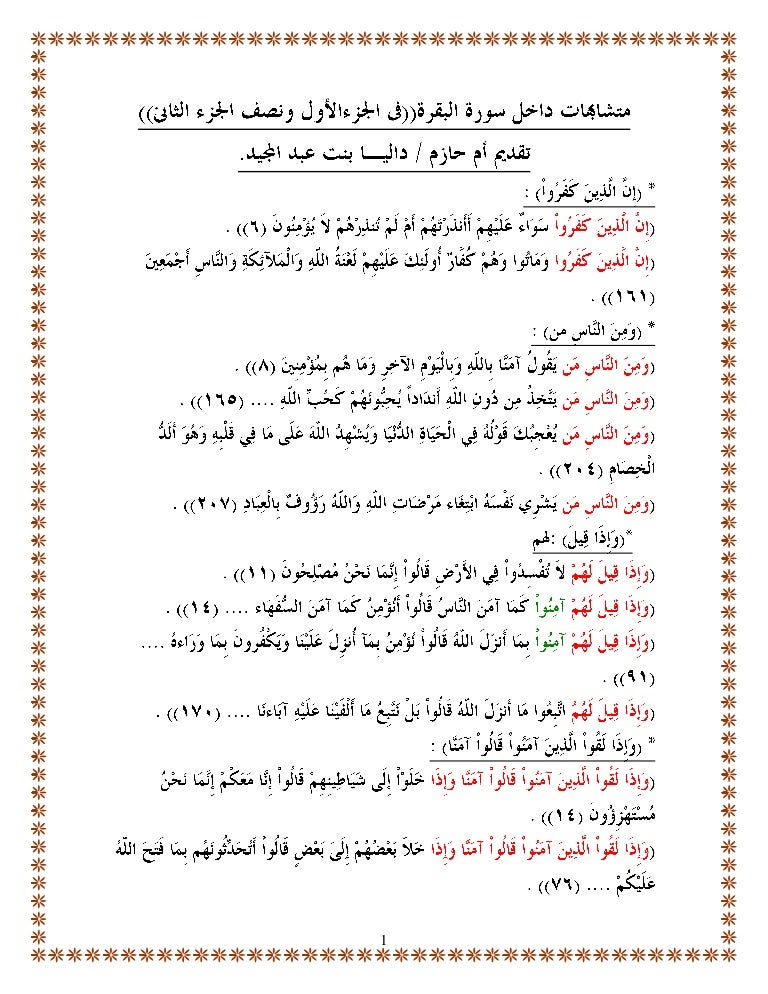 متشابهات داخل سورة البقرة((فى الجزءالأول ونصف الجزء الثانى))
تقديم أم حازم / داليـــا بنت عبد المجيد.
* (إِنَّ الَّذِينَ كَفَرُواْ) :
(إِنَّ الَّذِينَ كَفَرُواْ سَوَاءٌ عَلَيْهِمْ أَأَنذَرْتَهُمْ أَمْ لَمْ تُنذِرْهُمْ لاَ يُؤْمِنُونَ (٦)) .
(إِنَّ الَّذِينَ كَفَرُوا وَمَاتُوا وَهُمْ كُفَّارٌ أُولَئِكَ عَلَيْهِمْ لَعْنَةُ اللّهِ وَالْمَلآئِكَةِ وَالنَّاسِ أَجْمَعِينَ
(١٦١)) .
* (وَمِنَ النَّاسِ من) :
(وَمِنَ النَّاسِ مَن يَقُولُ آمَنَّا بِاللّهِ وَبِالْيَوْمِ الآخِرِ وَمَا هُم بِمُؤْمِنِينَ (٨)) .
(وَمِنَ النَّاسِ مَن يَتَّخِذُ مِن دُونِ اللّهِ أَندَاداً يُحِبُّونَهُمْ كَحُبِّ اللّهِ .... (١٦٥)) .
(وَمِنَ النَّاسِ مَن يُعْجِبُكَ قَوْلُهُ فِي الْحَيَاةِ الدُّنْيَا وَيُشْهِدُ اللّهَ عَلَى مَا فِي قَلْبِهِ وَهُوَ أَلَدُّ
الْخِصَامِ (٢٠٤)) .
(وَمِنَ النَّاسِ مَن يَشْرِي نَفْسَهُ ابْتِغَاء مَرْضَاتِ اللّهِ وَاللّهُ رَؤُوفٌ بِالْعِبَادِ (٢٠٧)) .
*(وَإِذَا قِيلَ) :لهم
(وَإِذَا قِيلَ لَهُمْ لاَ تُفْسِدُواْ فِي الأَرْضِ قَالُواْ إِنَّمَا نَحْنُ مُصْلِحُونَ (١١)) .
(وَإِذَا قِيلَ لَهُمْ آمِنُواْ كَمَا آمَنَ النَّاسُ قَالُواْ أَنُؤْمِنُ كَمَا آمَنَ السُّفَهَاء .... (١٤)) .
(وَإِذَا قِيلَ لَهُمْ آمِنُواْ بِمَا أَنزَلَ اللّهُ قَالُواْ نُؤْمِنُ بِمَآ أُنزِلَ عَلَيْنَا وَيَكْفُرونَ بِمَا وَرَاءهُ ....
(٩١)) .
(وَإِذَا قِيلَ لَهُمُ اتَّبِعُوا مَا أَنزَلَ اللّهُ قَالُواْ بَلْ نَتَّبِعُ مَا أَلْفَيْنَا عَلَيْهِ آبَاءنَا .... (١٧٠)) .
* (وَإِذَا لَقُواْ الَّذِينَ آمَنُواْ قَالُواْ آمَنَّا) :
(وَإِذَا لَقُواْ الَّذِينَ آمَنُواْ قَالُواْ آمَنَّا وَإِذَا خَلَوْاْ إِلَى شَيَاطِينِهِمْ قَالُواْ إِنَّا مَعَكْمْ إِنَّمَا نَحْنُ
مُسْتَهْزِؤُونَ (١٤)) .
(وَإِذَا لَقُواْ الَّذِينَ آمَنُواْ قَالُواْ آمَنَّا وَإِذَا خَلاَ بَعْضُهُمْ إِلَىَ بَعْضٍ قَالُواْ أَتُحَدِّثُونَهُم بِمَا فَتَحَ اللّهُ
عَلَيْكُمْ .... (٧٦)) .
1